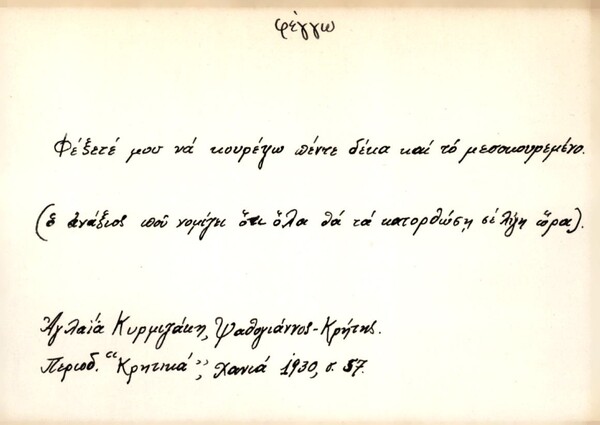 φέγγω
Φέξετέ μου νά κουρέψω πέντε δέκα καί τό μεσοκουρεμένο.
(ὁ ἀνάξιος πού νομίζει ὅτι ὅλα θά τά κατορθώσῃ σέ λίγη ὥρα).
Ἀγλαΐα Κυρμιζάκη, Ψαθογιάννος-Κρήτης.
Περιοδ. "Κρητικά", Χανιά 1930, σ. 57.